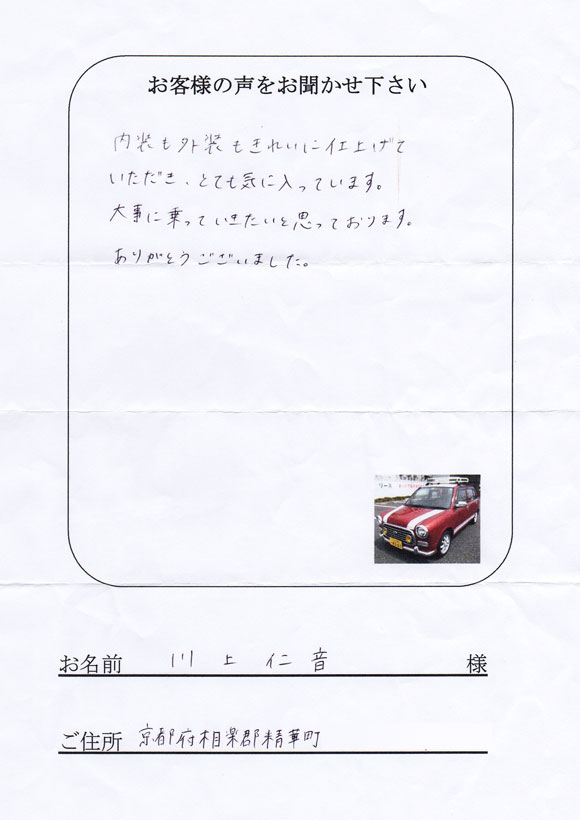 お客様の声をお聞かせ下さい
内装も外装もきれいに仕上げて
いただき、とても気に入っています。
大事に乗っていきたいと思っております。
ありがとうございました。
リース
お名前 川上仁音 様
ご住所 京都府相楽郡精華町